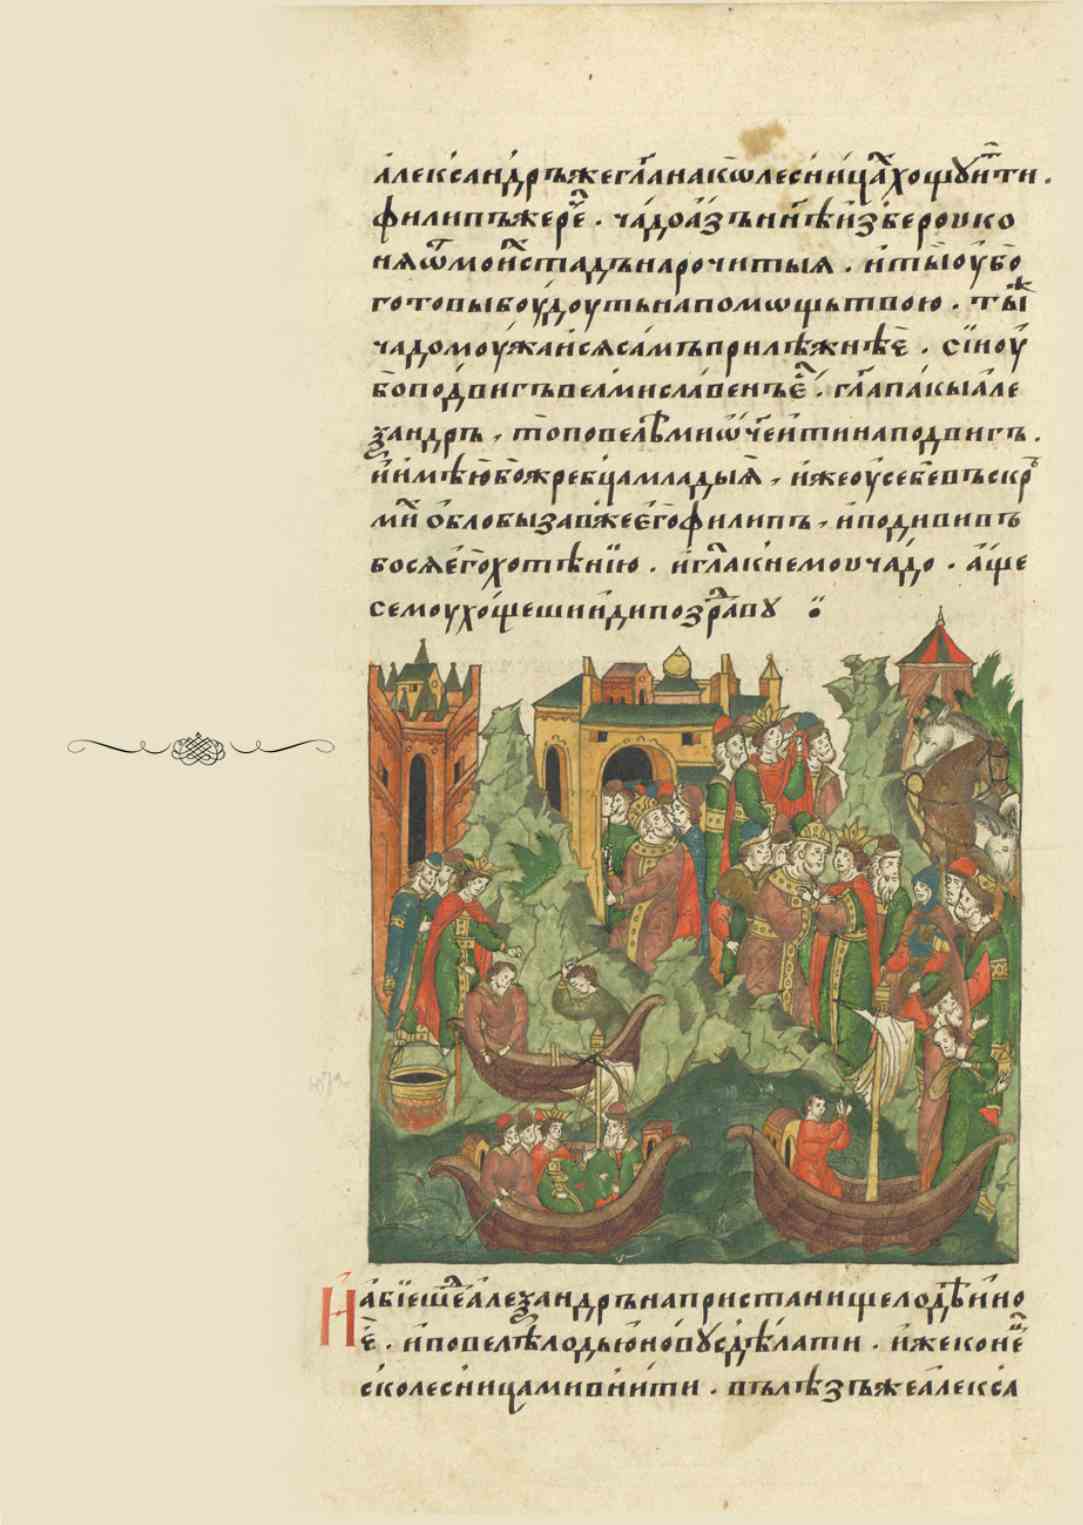 а҆леѯа́ндръжегл҃ана кѡлесни́цахъхощꙋ и҆ти .
фили́пъжереч҃е . ча́доа҆́зъны́нѣи҆збероуко
няѿмои́хъстадънарочитыя . и҆ты́оу҆бо
гото́выбоу́доутьнапомѡщьтвою . ты́к
чадомоу́жаисясамъприлѣжнѣе . сїноу҆
бо подви́гъвелмисла́венъе҆ . гл҃апа́кыале
ѯандръ , топовелѣ́миѿч҃еи҆тинаподвигъ .
и҆и҆мѣюбожребцамладыя , и҆жеоу҆себевъскр
ми́хъ ѡ҆блобыза́вжее҆гофили́пъ , и҆подививъ
босяе҆гохотѣнїю . и҆гл҃акнемоуча́до . а҆ще
семоухо́щешииди поздра́вꙋ
На бїе шеда҆леѯандръна пристанищелодѣйно
е҆ . и҆повелѣлодьюновꙋсдѣлати . и҆жеконе
сколесницамивнити . влѣзъжеа҆лекса